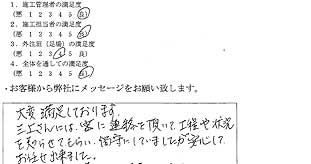 1．施工管理者の満足度
（悪 1 2 3 4 5 良）
2．施工担当者の満足度
（悪 1 2 3 4 5 良）
3．外注班（足場）の満足度
（悪 1 2 3 4 5 良）
4．全体を通しての満足度
（悪 1 2 3 4 5 良）
・お客様から弊社にメッセージをお願い致します。
大変満足しております。
三上さんには、密に連絡を頂いて、工程や状況
を知らせてもらい、留守にしていましたが安心して
お任せ出来ました。